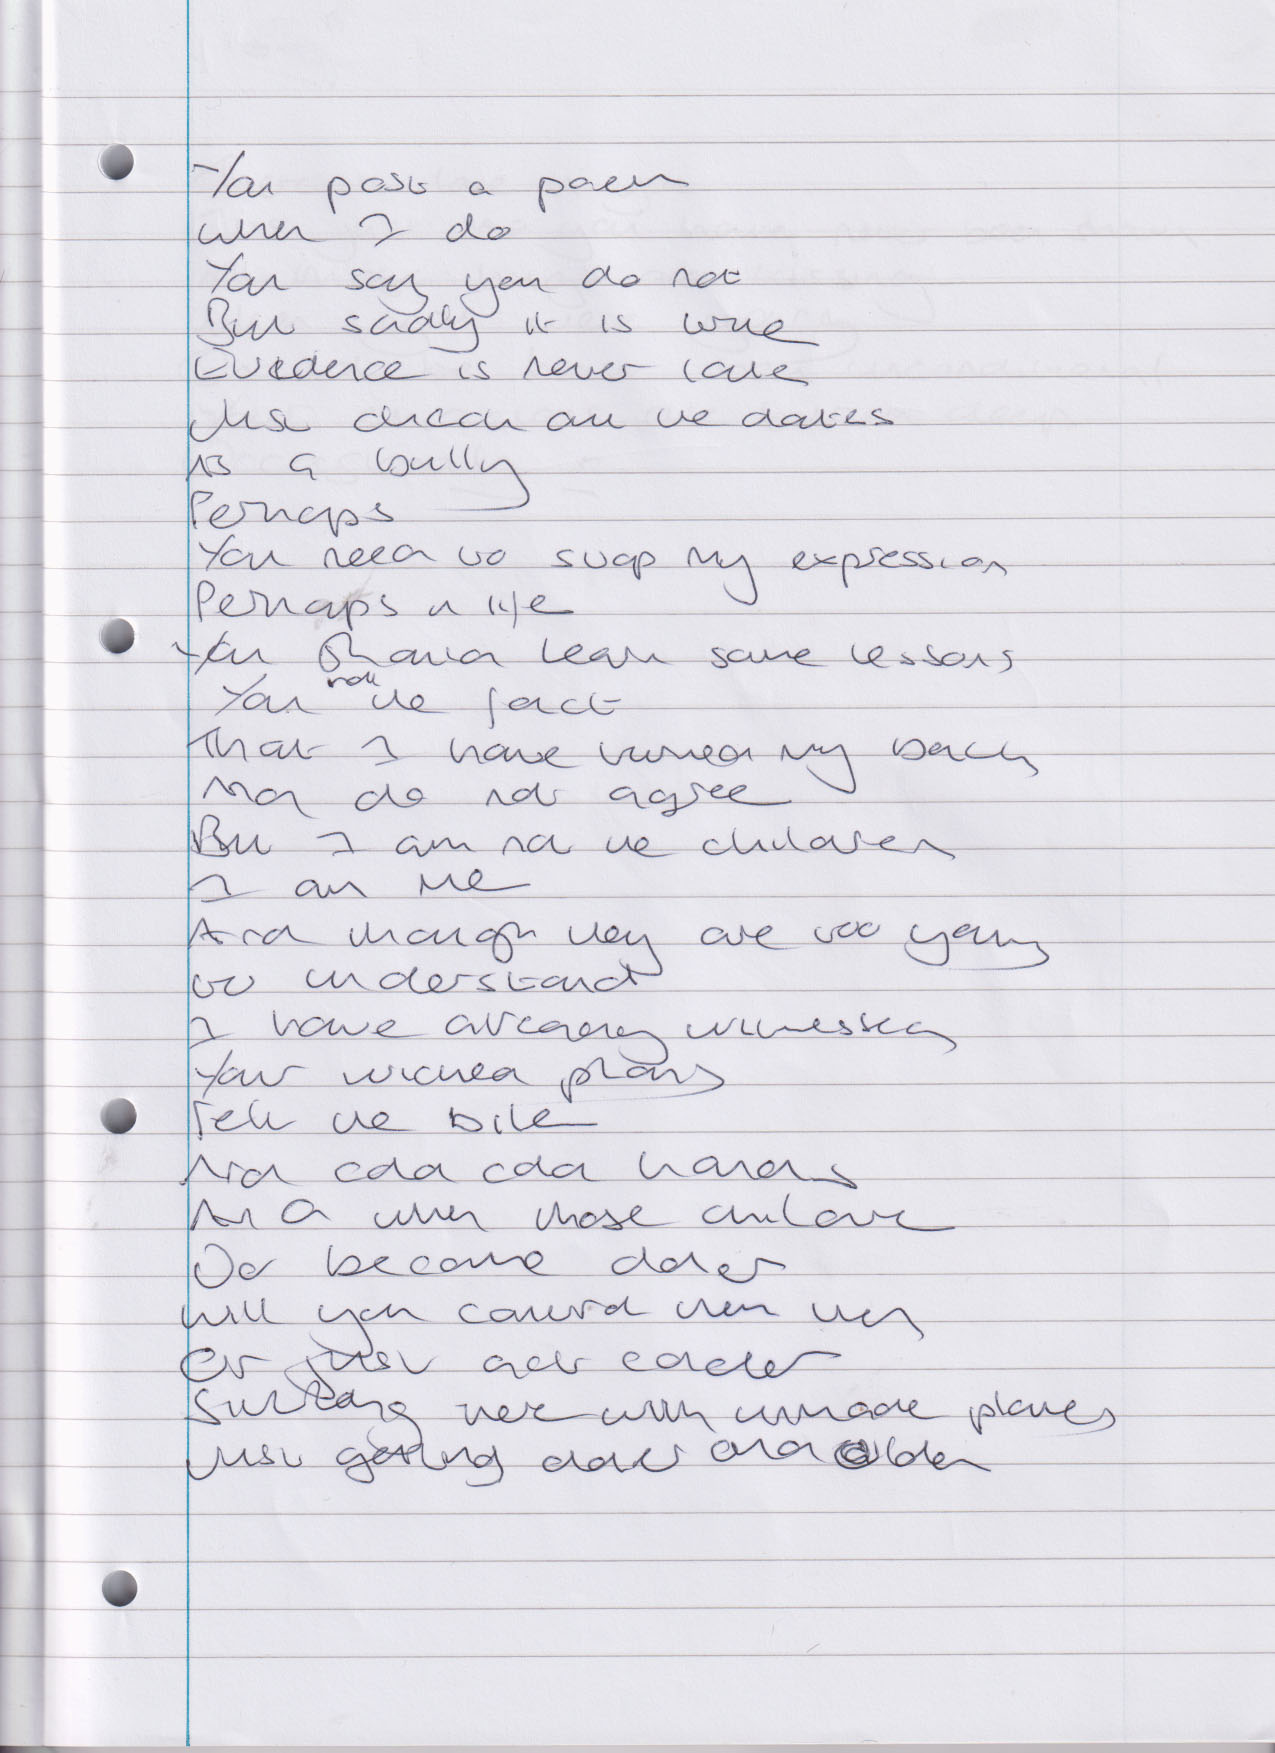 You post a poem
when I do
You say you do not
But sadly it is true
Evidence is never late
Just check out the dates
As a bully
Perhaps
You need to stop my expression
Perhaps a life
You should learn some lessons
You not the fact
That I have turned my back
And do not agree
But I am not the children
I am me
And though they are too young
to understand
I have already witnessed
Your wicked plans
Felt the bile
And cold cold hands
And when those children
Do become older
Will you control them then
Or just act colder
Sitting there with unmade plans
Just getting older and older